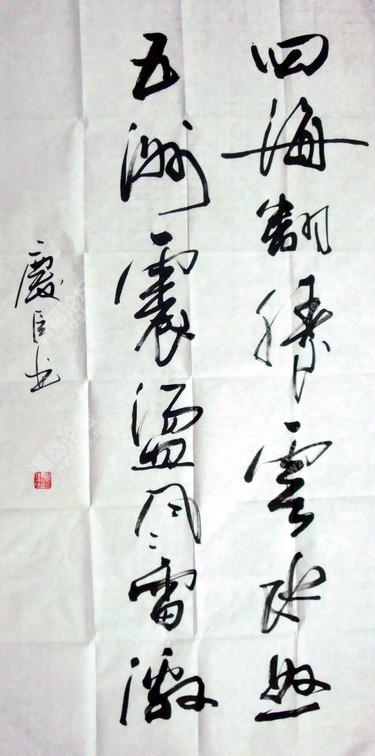 四海翻腾雲水怒
五洲震盪风雷激
慶臣书